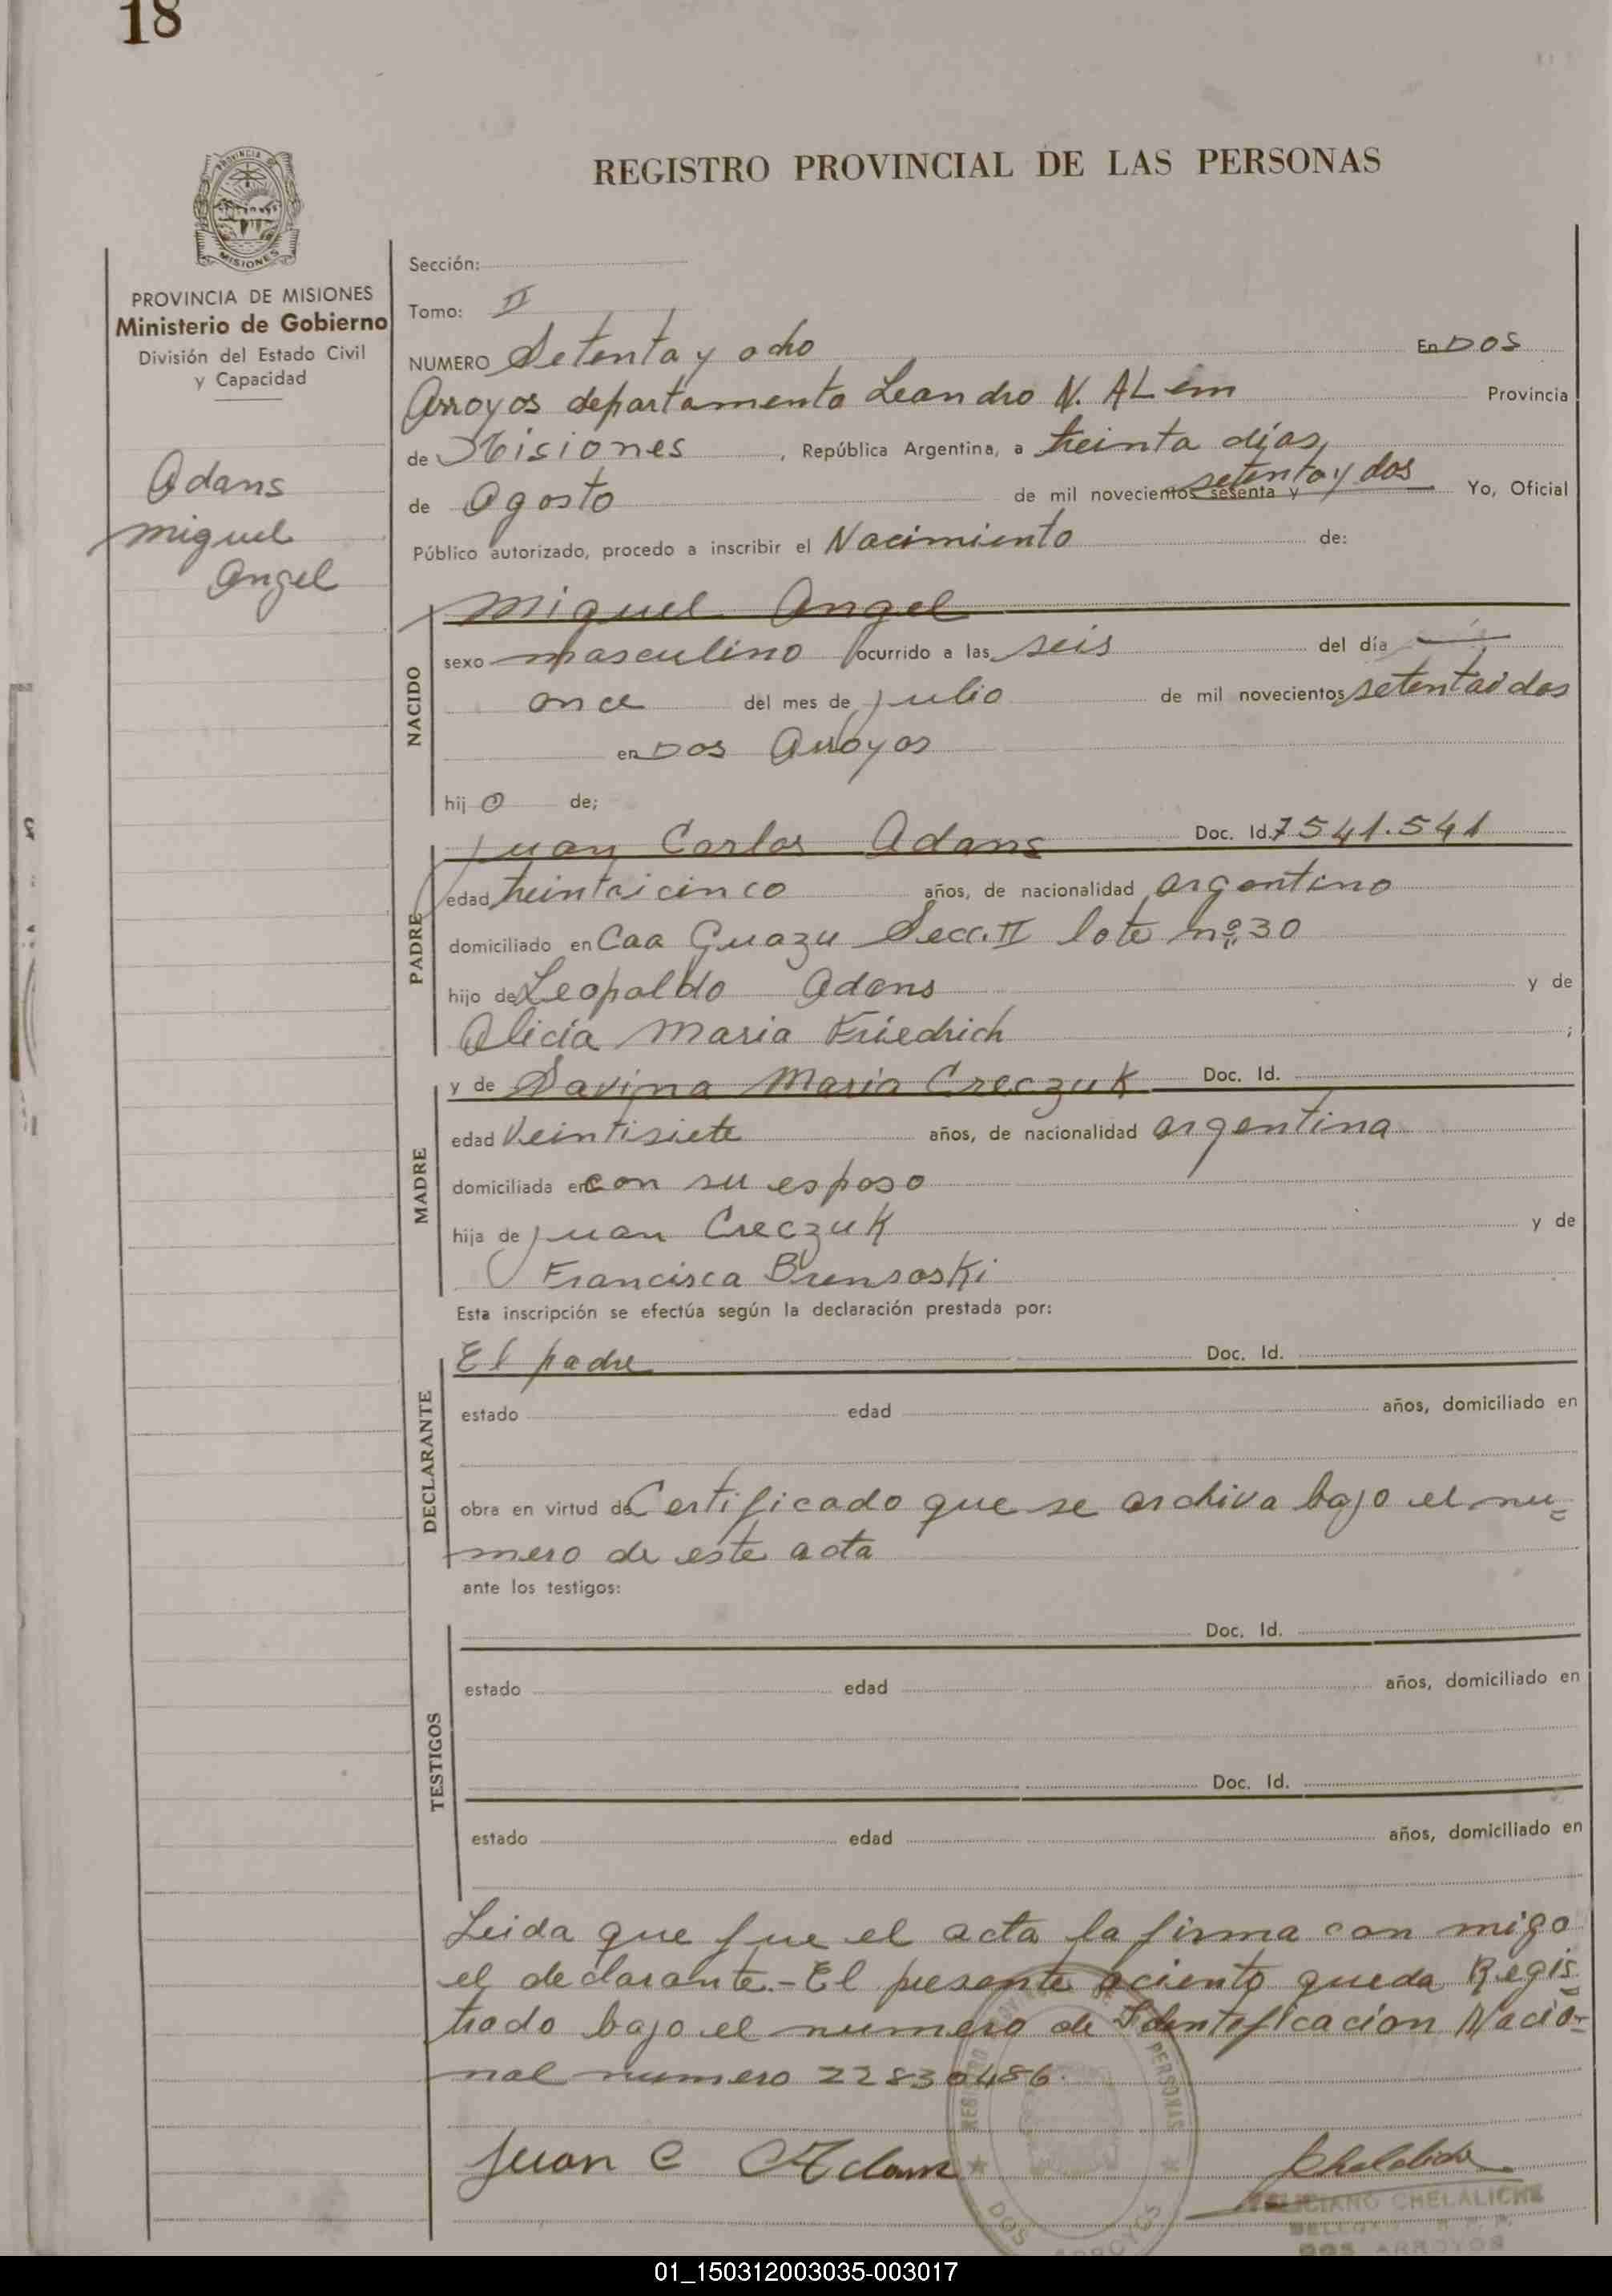 18
PROVINCIA DE
MISIONES
REGISTRO PROVINCIAL DE LAS PERSONAS
PROVINCIA DE MISIONES
Ministerio de Gobierno
División del Estado Civil
y Capacidad
Adans
Miguel
Angel
Sección:
Tomo: II
NUMERO Setenta y ocho En DOS
Arroyos departamento Leandro N. ALem Provincia
de Misiones, República Argentina, a treinta días
de Agosto de mil novecientos sesenta y setenta y dos Yo, Oficial
Público autorizado, procedo a inscribir el Nacimiento de:
NACIDO
Miguel Angel
sexo masculino ocurrido a las seis del día
once del mes de julio de mil novecientos setentaidos
en Dos Arroyos
hijo de;
PADRE
Juan Carlos Adans Doc. Id. 7541.541
edad treintaicinco años, de nacionalidad argentino
domiciliado en Caa Guazu Secc. II lote nº 30
hijo de Leopoldo Adans y de
Alicia Maria Friedrich ;
MADRE
y de Savina Maria Creczuk Doc. Id.
edad veintisiete años, de nacionalidad argentina
domiciliada en con su esposo
hija de Juan Creczuk y de
Francisca Brunsoski
Esta inscripción se efectúa según la declaración prestada por:
DECLARANTE
El padre Doc. Id.
estado edad años, domiciliado en
obra en virtud de Certificado que se archiva bajo el nu=
mero de este acta
ante los testigos:
TESTIGOS
Doc. Id.
estado edad años, domiciliado en
Doc. Id.
estado edad años, domiciliado en
Leida que fue el acta la firma con migo
el declarante.- El presente aciento queda Regis=
trado bajo el numero de Identificacion Nacio=
nal numero 22830486.
Juan C Adans
PERSONAS
DOS ARROYOS
FELICIANO CHELALICHE
DOS ARROYOS
01_150312003035-003017